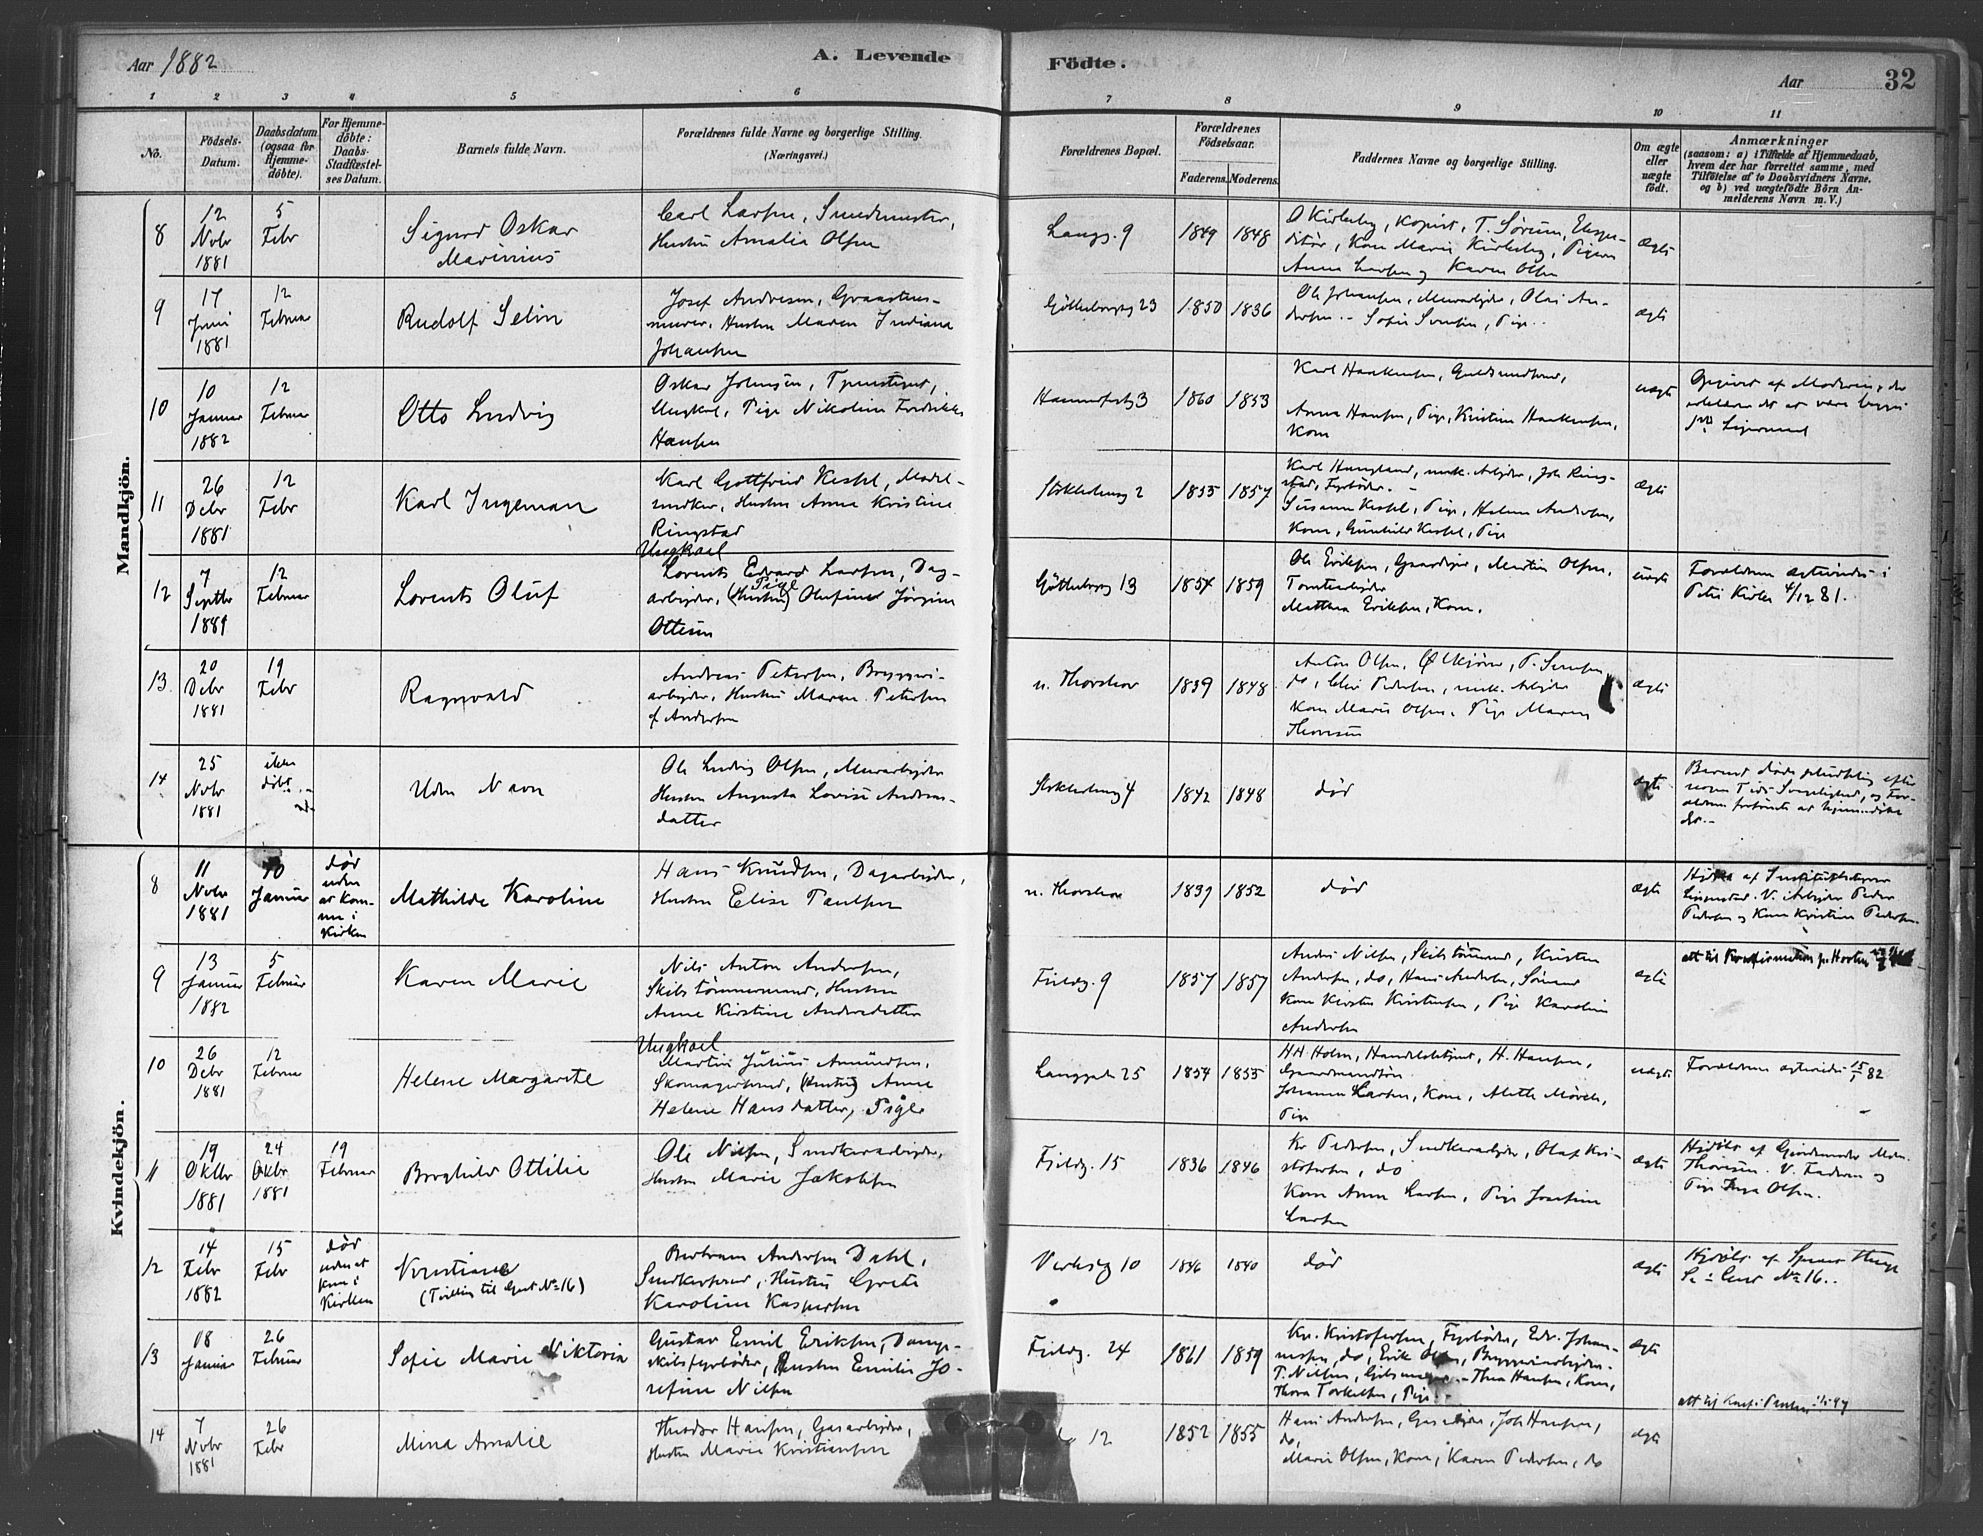 Aar 1882
A. Levende Födte.
Aar
32
1 2 3 4 5 6 7 8 9 10 11
No.
Födsels-Datum.
Daabsdatum (ogsaa for Hjemme-döbte).
For Hjemme-döbte: Daabs-Stadfæstel-ses Datum.
Barnets fulde Navn.
Forældrenes fulde Navne og borgerlige Stilling.
(Næringsvei.)
Forældrenes Bopæl.
Forældrenes Födselsaar.
Faderens. Moderens.
Faddernes Navne og borgerlige Stilling.
Om ægte eller uægte födt.
Anmærkninger
(saasom: a) i Tilfælde af Hjemmedaab,
hvem der har forrettet samme, med
Tilföielse af to Daabsvidners Navne.
og b) ved uægtefödte Börn An-
melderens Navn m. V.)
Mandkjön.
8
12 Novbr 1881
5 Febr
Sigurd Oskar
Marinius
Carl Larsen, Smedmester,
Hustru Amalia Olsen
Langg. 9
1849 1848
O Kirkeby, Kopist, T. Sørum, Expe-
ditør, Kone Marie Kirkeby, Pigerne
Anna Larsen og Karen Olsen
ægte
9
17 Juni 1881
12 Februar
Rudolf Selin
Josef Andresen, Graastens-
murer, Hustru Maren Indiana
Johansen
Gøtteborgg 23
1850 1836
Ole Johansen, Murarbjder, Olai An-
dersen .. Sofie Svensen, Pige..
ægte
10
10 Januar 1882
12 Februar
Otto Ludvig
Oskar Johnsen,
Ungkarl, Pige Nikoline Fredrikke
Hansen
Hammerfestg 3
1860 1853
Karl Haakensen, Guldsmedsvend,
Anna Hansen, Pige, Kristine Haakensen,
Kone
uægte
Opgivet af Moderen, der
erklærer det at være begges
11
26 Debr 1881
12 Febr
Karl Ingeman
Karl Gottfried Kessel, Model-
snedker, Hustru Anne Kristine
Ringstad
Stokholmsg 2
1855 1857
Karl Haugland, mek. Arbjder, Joh Ring-
stad, Fyrbøder. -
Susanne Kessel, Pige, Helene Andersen,
Kone, Gunhild Kessel, Pige
ægte
12
7 Septbr 1881
12 Februar
Lorents Oluf
Ungkarl
Lorents Edvard Larsen, Dag-
arbjder, (Hustru) Pige Olufine Jørgine
Ottesen
Gøtteborg 13
1854 1859
Ole Eriksen, Gaardejer, Martin Olsen,
Tomtearbjder
Mathea Eriksen, Kone.
uægte
Forældrene ægteviedes i
Petri Kirke 4/12 81.
13
20 Debr 1881
19 Febr
Ragnvald
Andreas Petersen, Bryggeri-
arbjder, Hustru Maren Petersen
f. Andersen
n. Thorshov
1839 1848
Anton Olsen, Ølkjører, P. Svensen,
do, Chr Pedersen, mek. Arbjder
Kone Marie Olsen, Pige Maren
Thoresen
ægte
14
25 Novbr 1881
ikke døbt
Uden Navn
Ole Ludvig Olsen, Murarbejder
Hustru Augusta Lovise Andreas-
datter
Stokholmsg 4
1842 1848
død
ægte
Barnet døde pludselig efter
nogen Tids Svagelighed, og For-
ældrene forsømte at hjemmedøbe
det.-
Kvindekjön.
8
11 Novbr 1881
10 Januar
død uden at kom-me i Kirken
Mathilde Karoline
Hans Knudsen, Dagarbejder,
Hustru Elise Paulsen
n. Thorshov
1839 1852
død
ægte
Pedersen og Kone Kristine Pedersen.
9
13 Januar 1882
5 Februar
Karen Marie
Nils Anton Andersen,
Skibstømmermand, Hustru
Anne Kirstine Andersdatter
Fjeldg. 9
1857 1857
Anders Nilsen, Skibstømmd, Kristen
Andersen, do, Hans Andersen, Sømand
Kone Kirsten Kristensen, Pige Karoline
Andersen
ægte
att til Konfirmation fr. Horten
10
26 Debr 1881
12 Februar
Helene Margarete
Ungkarl
Martin Julius Amundsen,
Skomagersvend, (Hustru) Anne
Helene Hansdatter, Pige
Langgade 25
1854 1855
HH Holm, Handelsbetjent, H. Hansen,
Gaardmandssøn.
Johanna Larsen, Kone, Mette Mörch,
Pige
uægte
Forældrene ægteviedes 15/1 82
11
19 Oktbr 1881
24 Oktbr 1881
19 Februar
Borghild Ottilie
Ole Nilsen, Snedkerarbejder,
Hustru Marie Jakobsen
Fjeldg. 15
1836 1846
Kr Pedersen, Snedkerarbjder, Olaf Kri-
stofersen, do
Kone Anne Larsen, Pige Josefine
Larsen
ægte
Hjdøbt af Gjordemoder Mdm.
Thoresen. V. Faderen og
Pige Inga Olsen.
12
14 Febr 1882
15 Febr
død uden at kme i Kirken
Kristiane
(Tvilling til Gut No 16)
Bertram Andersen Dahl,
Snedkersvend, Hustru Grete
Karoline Kaspersen
Verksg 10
1846 1840
død
ægte
Se Gut No 16..
13
08 Januar
26 Februar
Sofie Marie Viktoria
Gustav Emil Eriksen, Damp-
skibsfyrbøder, Hustru Emilie Jo-
sefine Nilsen
Fjeldg. 24
1861 1859
Kr. Kristofersen, Fyrbøder, Edv. Johan-
nesen, do, Erik Olsen, Bryggeriarbjder.
T. Nilsen, Gibsmager.- Thea Hansen, Kone,
Thora Torkelsen, Pige.-
ægte
att til Konf:
14
7 Novbr 1881
26 Febr
Mina Amalie
Theodor Hansen, Gasarbejder,
Hustru Marie Kristiansen
12
1852 1855
Hans Andersen, Gasarbjder, Joh Hansen,
do,
Marie Olsen, Kone, Karen Pedersen, do
ægte